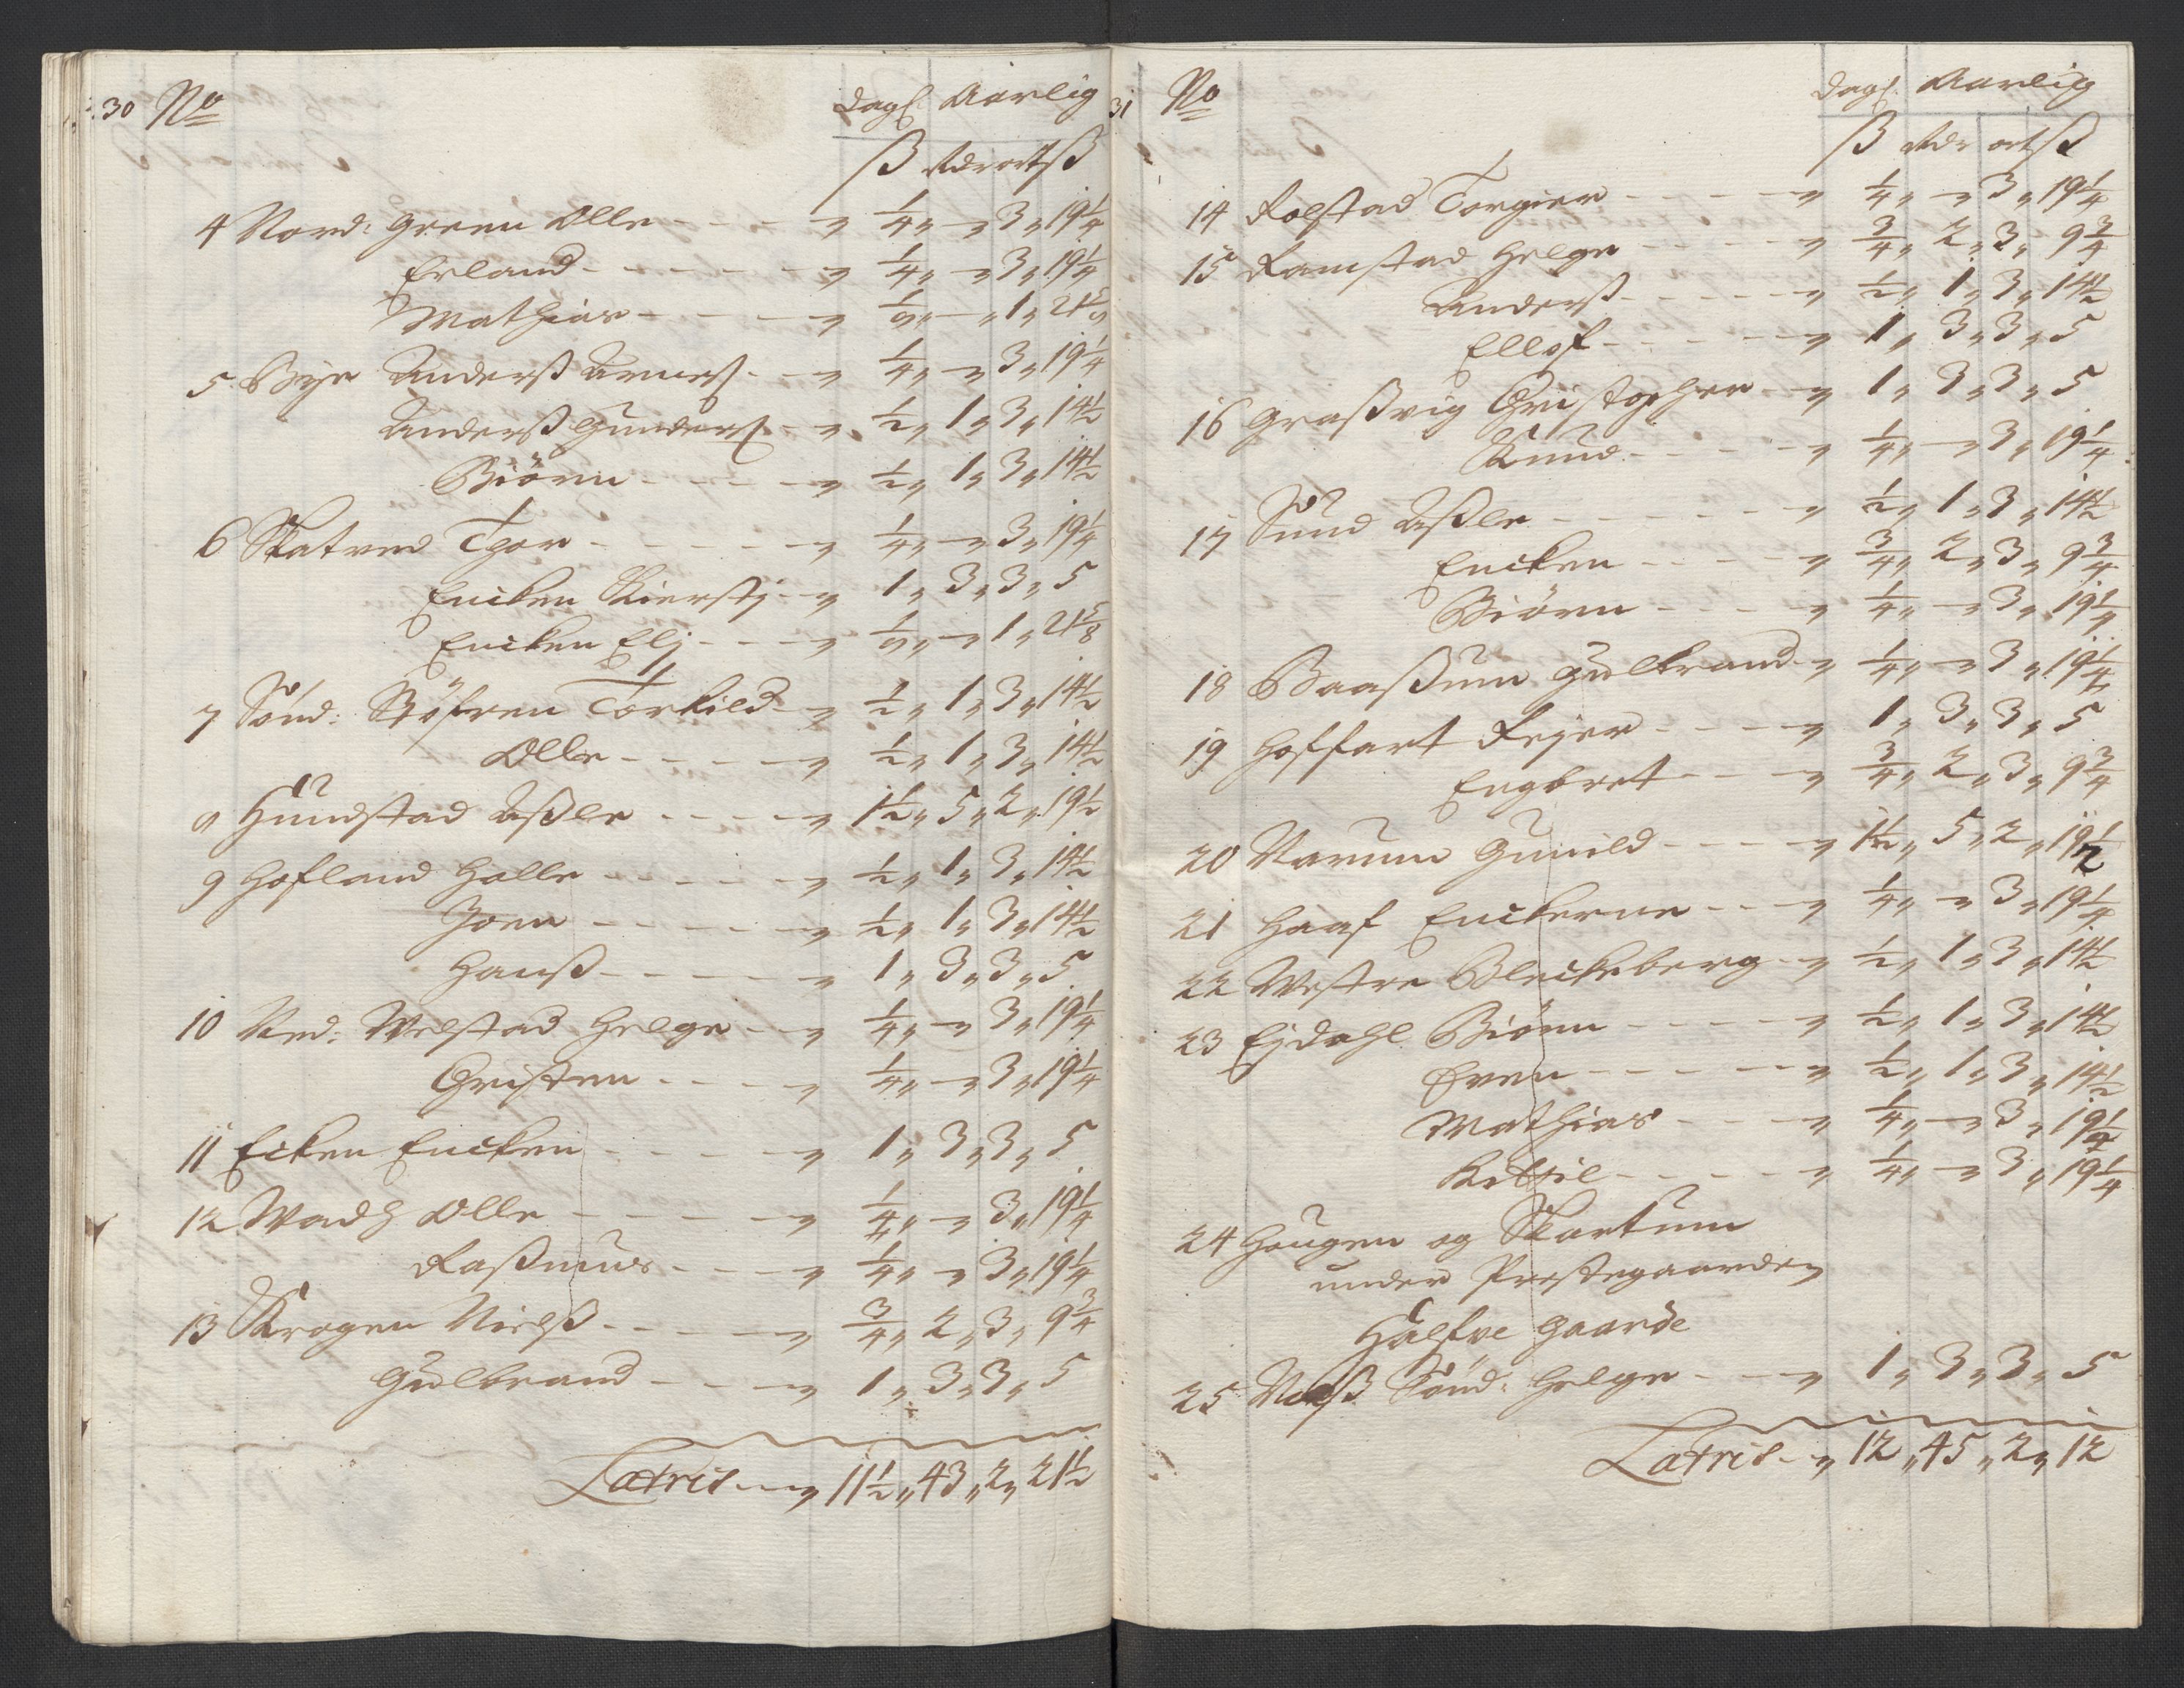 30 No Dagl. Aarlig
ß Rdr ort ß
4 Nord: Green Olle - - - " 1/4 " - " 3 " 19 1/4
Erland - - - - - " 1/4 " - " 3 " 19 1/4
Mathias - - - " 1/8 " - " 1 " 21 5/8
5 Bye Anderß Arnesf. - - " 1/4 " - " 3 " 19 1/4
Anderß Gundersf. - " 1/2 " 1 " 3 " 14 1/2
Biörn - - - - " 1/2 " 1 " 3 " 14 1/2
6 Skatved Thor - - - - - " 1/4 " - " 3 " 19 1/4
Encken Kierstj - - " 1 " 3 " 3 " 5
Encken Elj - - - " 1/8 " - " 1 " 21 5/8
7 Sönd: Stöfren Torkild - " 1/2 " 1 " 3 " 14 1/2
Olle - - - - " 1/2 " 1 " 3 " 14 1/2
8 Hundstad Aßle - - - - " 1 1/2 " 5 " 2 " 19 1/2
9 Hofland Halle - - - - - " 1/2 " 1 " 3 " 14 1/2
Joen - - - - - " 1/2 " 1 " 3 " 14 1/2
Hanß - - - - - " 1 " 3 " 3 " 5
10 Ned: Welstad Helge - - " 1/4 " - " 3 " 19 1/4
Christen - - - - " 1/4 " - " 3 " 19 1/4
11 Ecken Encken - - - - - " 1 " 3 " 3 " 5
12 Wadh Olle - - - - - " 1/4 " - " 3 " 19 1/4
Raßmus - - - - " 1/4 " - " 3 " 19 1/4
13 Krogen Nielß - - - - " 3/4 " 2 " 3 " 9 3/4
Gulbrand - - - " 1 " 3 " 3 " 5
Latris - - " 11 1/2 " 43 " 2 " 21 1/2
31 No Dagl. Aarlig
ß Rdr ort ß
14 Rolstad Torgier - - - - " 1/4 " - " 3 " 19 1/4
15 Ramstad Helge - - - - " 3/4 " 2 " 3 " 9 3/4
Anderß - - - - - " 1/2 " 1 " 3 " 14 1/2
Ellef - - - - - " 1 " 3 " 3 " 5
16 Graßvig Christopher - " 1 " 3 " 3 " 5
Knud - - - - " 1/4 " - " 3 " 19 1/4
17 Sund Aßle - - - - - - " 1/2 " 1 " 3 " 14 1/2
Encken - - - - " 3/4 " 2 " 3 " 9 3/4
Biörn - - - - " 1/4 " - " 3 " 19 1/4
18 Baaßum Gulbrand - " 1/4 " - " 3 " 19 1/4
19 Hoffart Rejer - - - - " 1 " 3 " 3 " 5
Engbret - - - " 3/4 " 2 " 3 " 9 3/4
20 Narum Gunild - - - - " 1 1/2 " 5 " 2 " 19 1/2
21 Haaf Enckerne - - - " 1/4 " - " 3 " 19 1/4
22 Westre Bleckeberg - " 1/2 " 1 " 3 " 14 1/2
23 Ejdahl Biörn - - - - - " 1/2 " 1 " 3 " 14 1/2
Even - - - - - " 1/2 " 1 " 3 " 14 1/2
Mathias - - - " 1/4 " - " 3 " 19 1/4
Kittil - - - - " 1/4 " - " 3 " 19 1/4
24 Hougen og Skartum
under Prestegaarden
Halfve Gaarde
25 Sönd: Helge - - - " 1 " 3 " 3 " 5
Latris - " 12 " 45 " 2 " 12